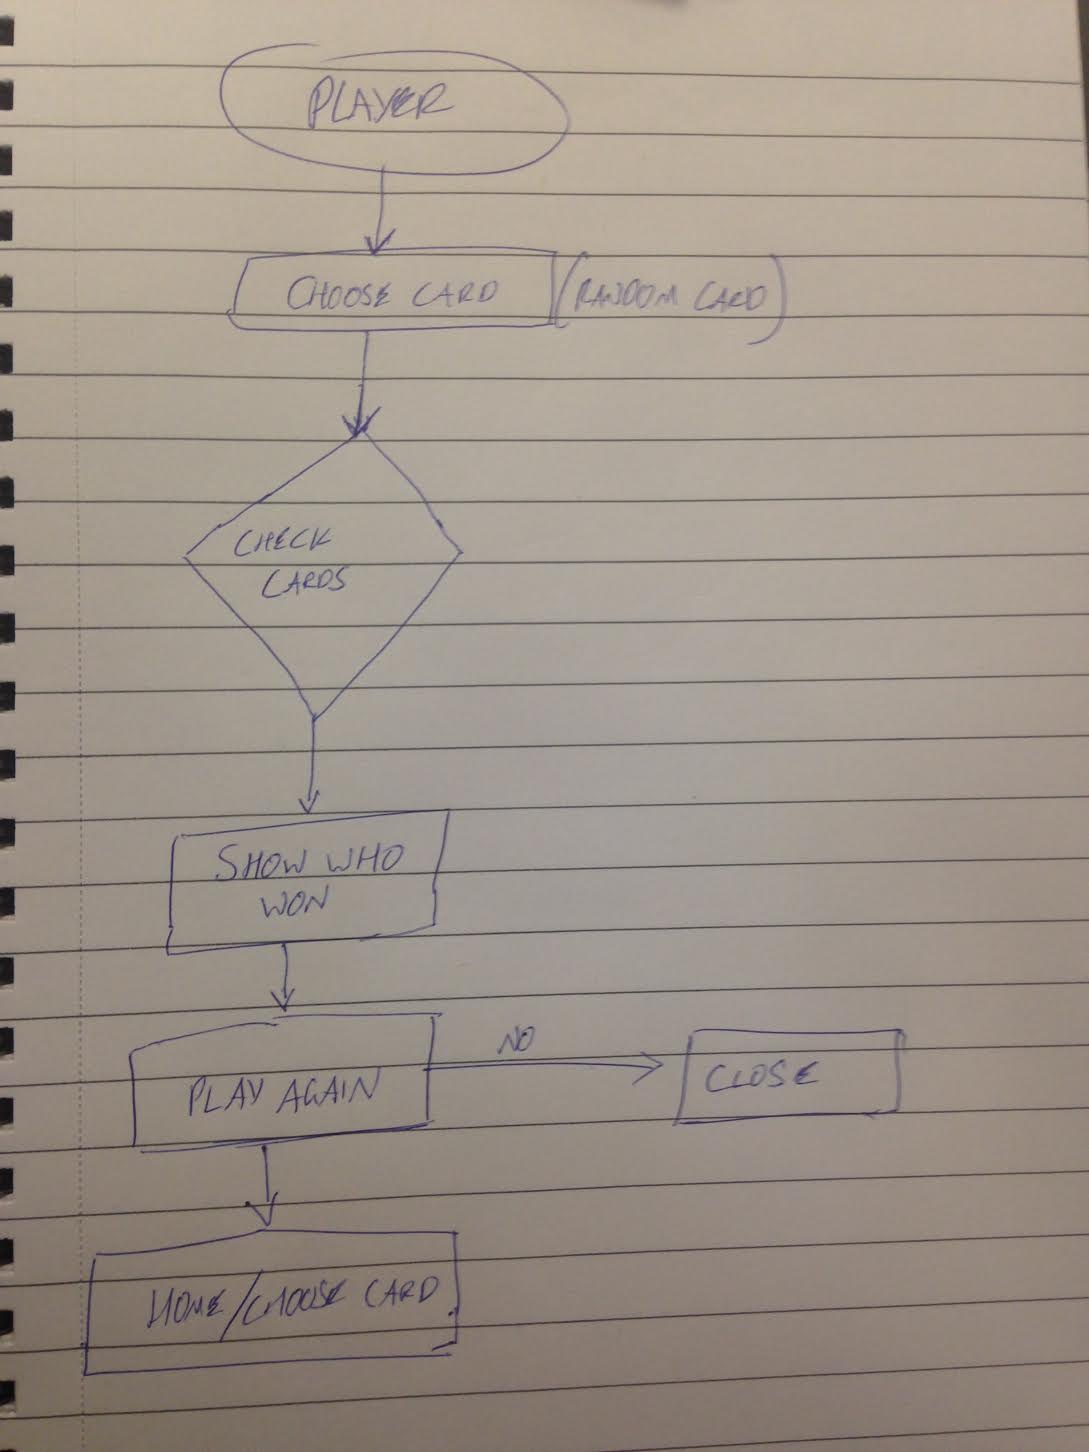 PLAYER
CHOOSE CARD (RANDOM CARD)
CHECK
CARDS
SHOW WHO
WON
PLAY AGAIN
NO
CLOSE
HOME/CHOOSE CARD